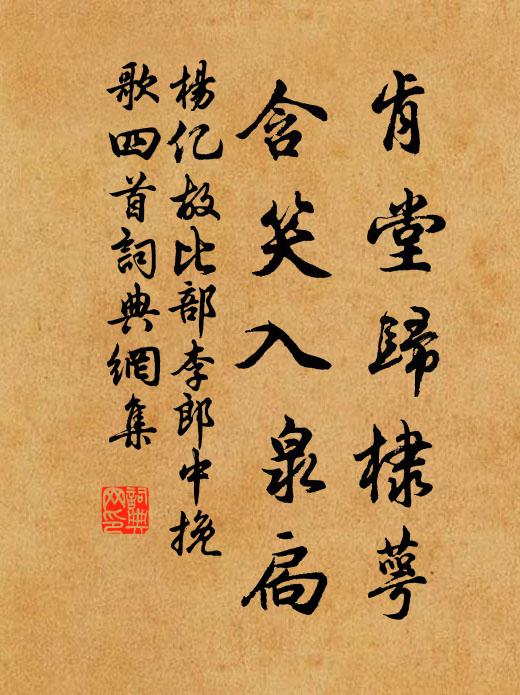 肯堂歸棣萼
含笑入泉扃
楊亿故比部李郎中挽
歌四首詞典網集
詞典网印